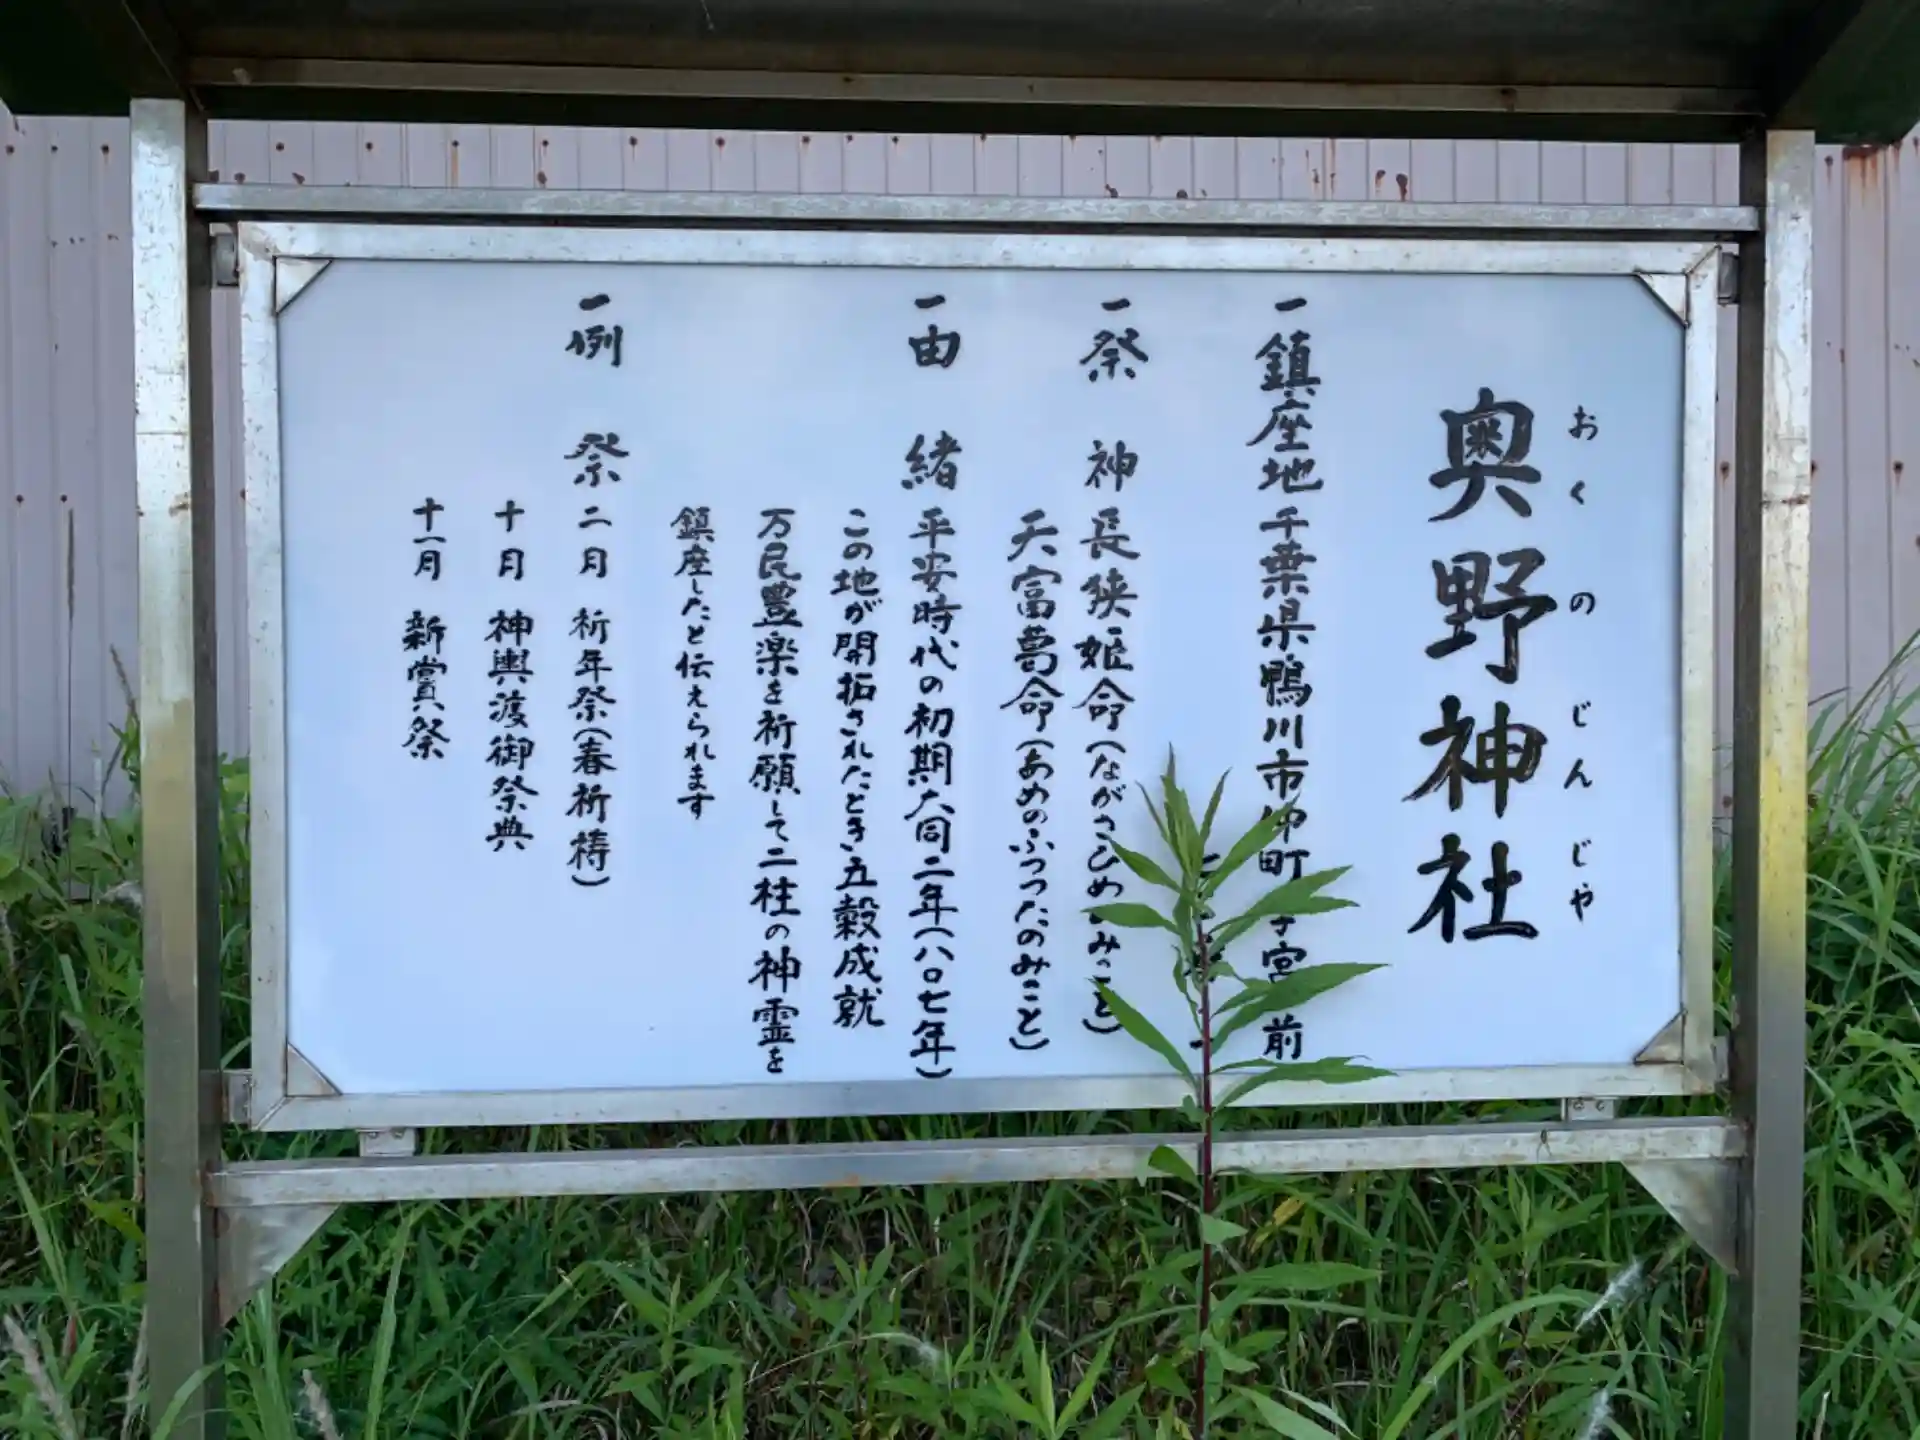 奥野神社
おくのじんじゃ
一鎮座地 千葉県鴨川市仲町字宮前
一祭神 長狭姫命(ながさひめのみこと)
天富葛命(あめのふつったのみこと)
一由緒 平安時代の初期大同二年(八〇七年)
この地が開拓されたとき五穀成就
万民豊楽を祈願して二柱の神霊を
鎮座したと伝えられます
一例祭 二月 祈年祭(春祈祷)
十月 神輿渡御祭典
十一月 新嘗祭